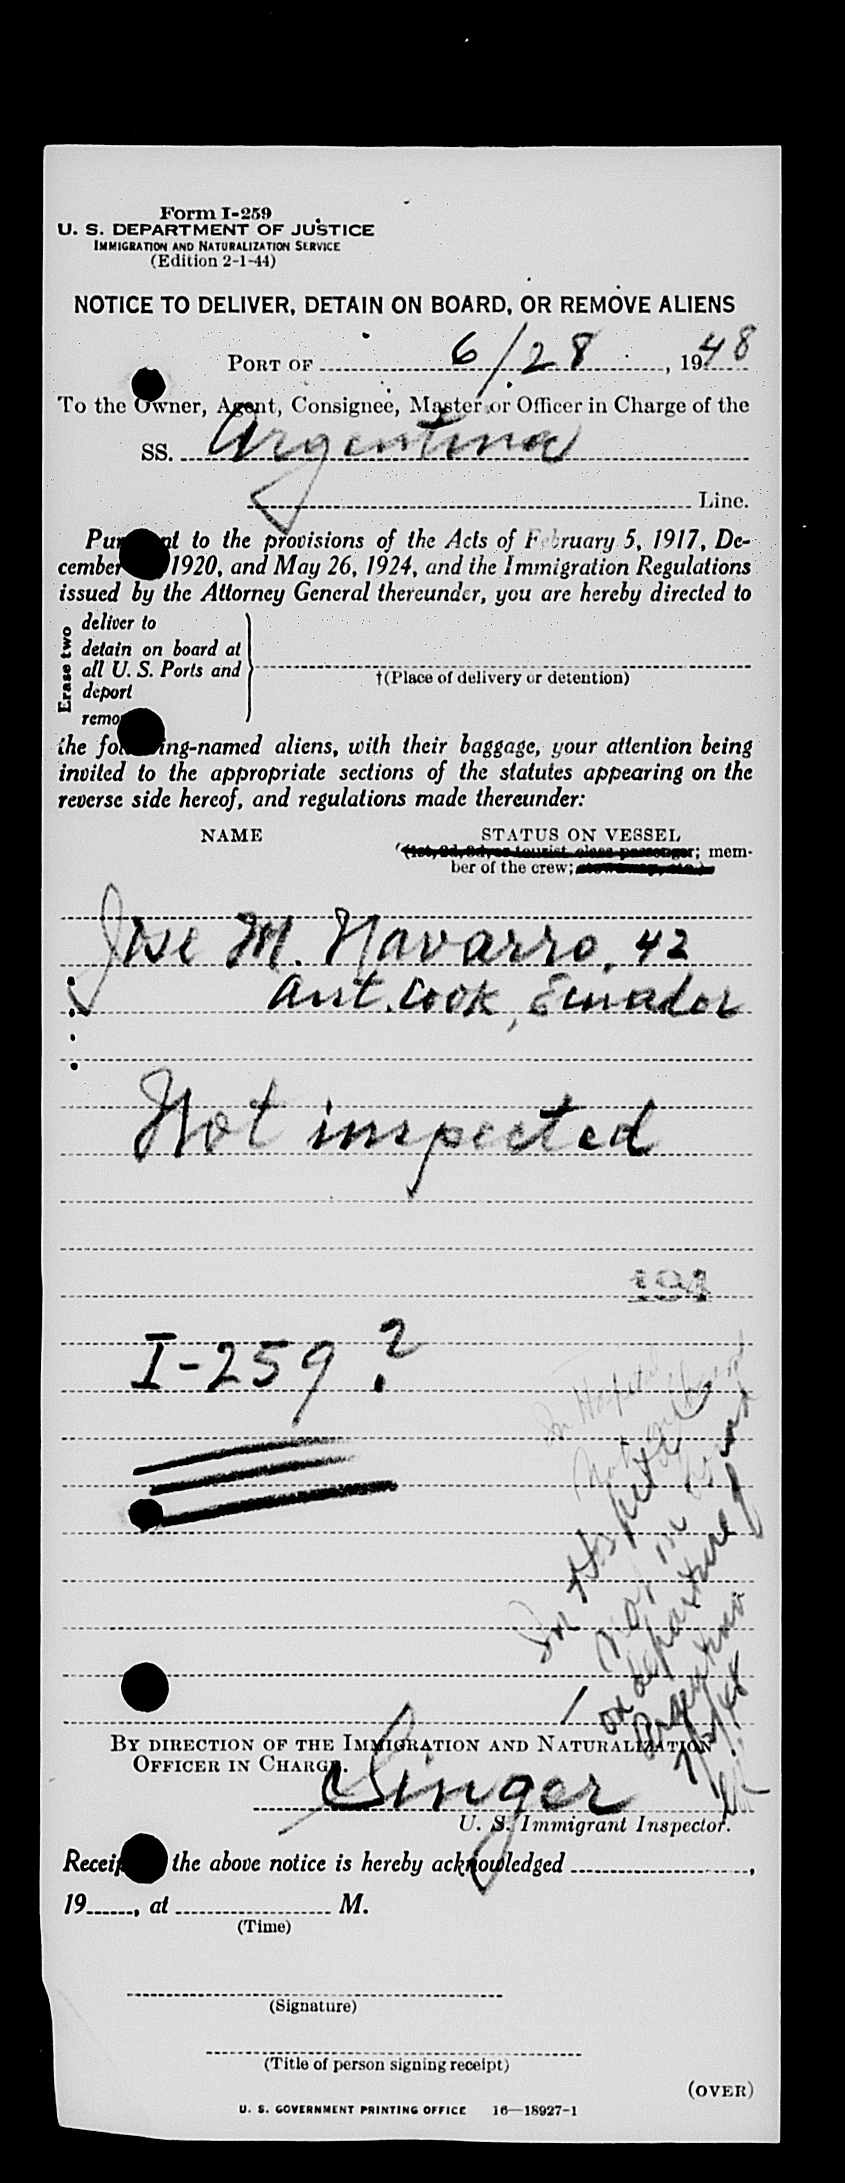 Form I-259
U. S. DEPARTMENT OF JUSTICE
IMMIGRATION AND NATURALIZATION SERVICE
(Edition 2-1-44)
NOTICE TO DELIVER, DETAIN ON BOARD, OR REMOVE ALIENS
PORT OF 6/28, 1948
To the Owner, Agent, Consignee, Master or Officer in Charge of the
SS. Argentina
Line.
Pur nt to the provisions of the Acts of February 5, 1917, De-
cember 1920, and May 26, 1924, and the Immigration Regulations
issued by the Attorney General thereunder, you are hereby directed to
Erase two
deliver to
detain on board at
all U. S. Ports and
deport
remo
†(Place of delivery or detention)
the fol ing-named aliens, with their baggage, your attention being
invited to the appropriate sections of the statutes appearing on the
reverse side hereof, and regulations made thereunder:
NAME STATUS ON VESSEL
(1st, 2d, 3d, or tourist class passenger; mem-
ber of the crew;
Jose M. Navarro, 42
Asst. Cook, Ecuador
Not inspected
I-259?
In Hospital
Not on board
In Hospital
not on board
on departure of
Argentina
BY DIRECTION OF THE IMMIGRATION AND NATURALIZATION
OFFICER IN CHARGE.
Singer
U. S. Immigrant Inspector.
Receip the above notice is hereby acknowledged ,
19 , at M.
(Time)
(Signature)
(Title of person signing receipt)
(OVER)
U. S. GOVERNMENT PRINTING OFFICE 16—18927-1